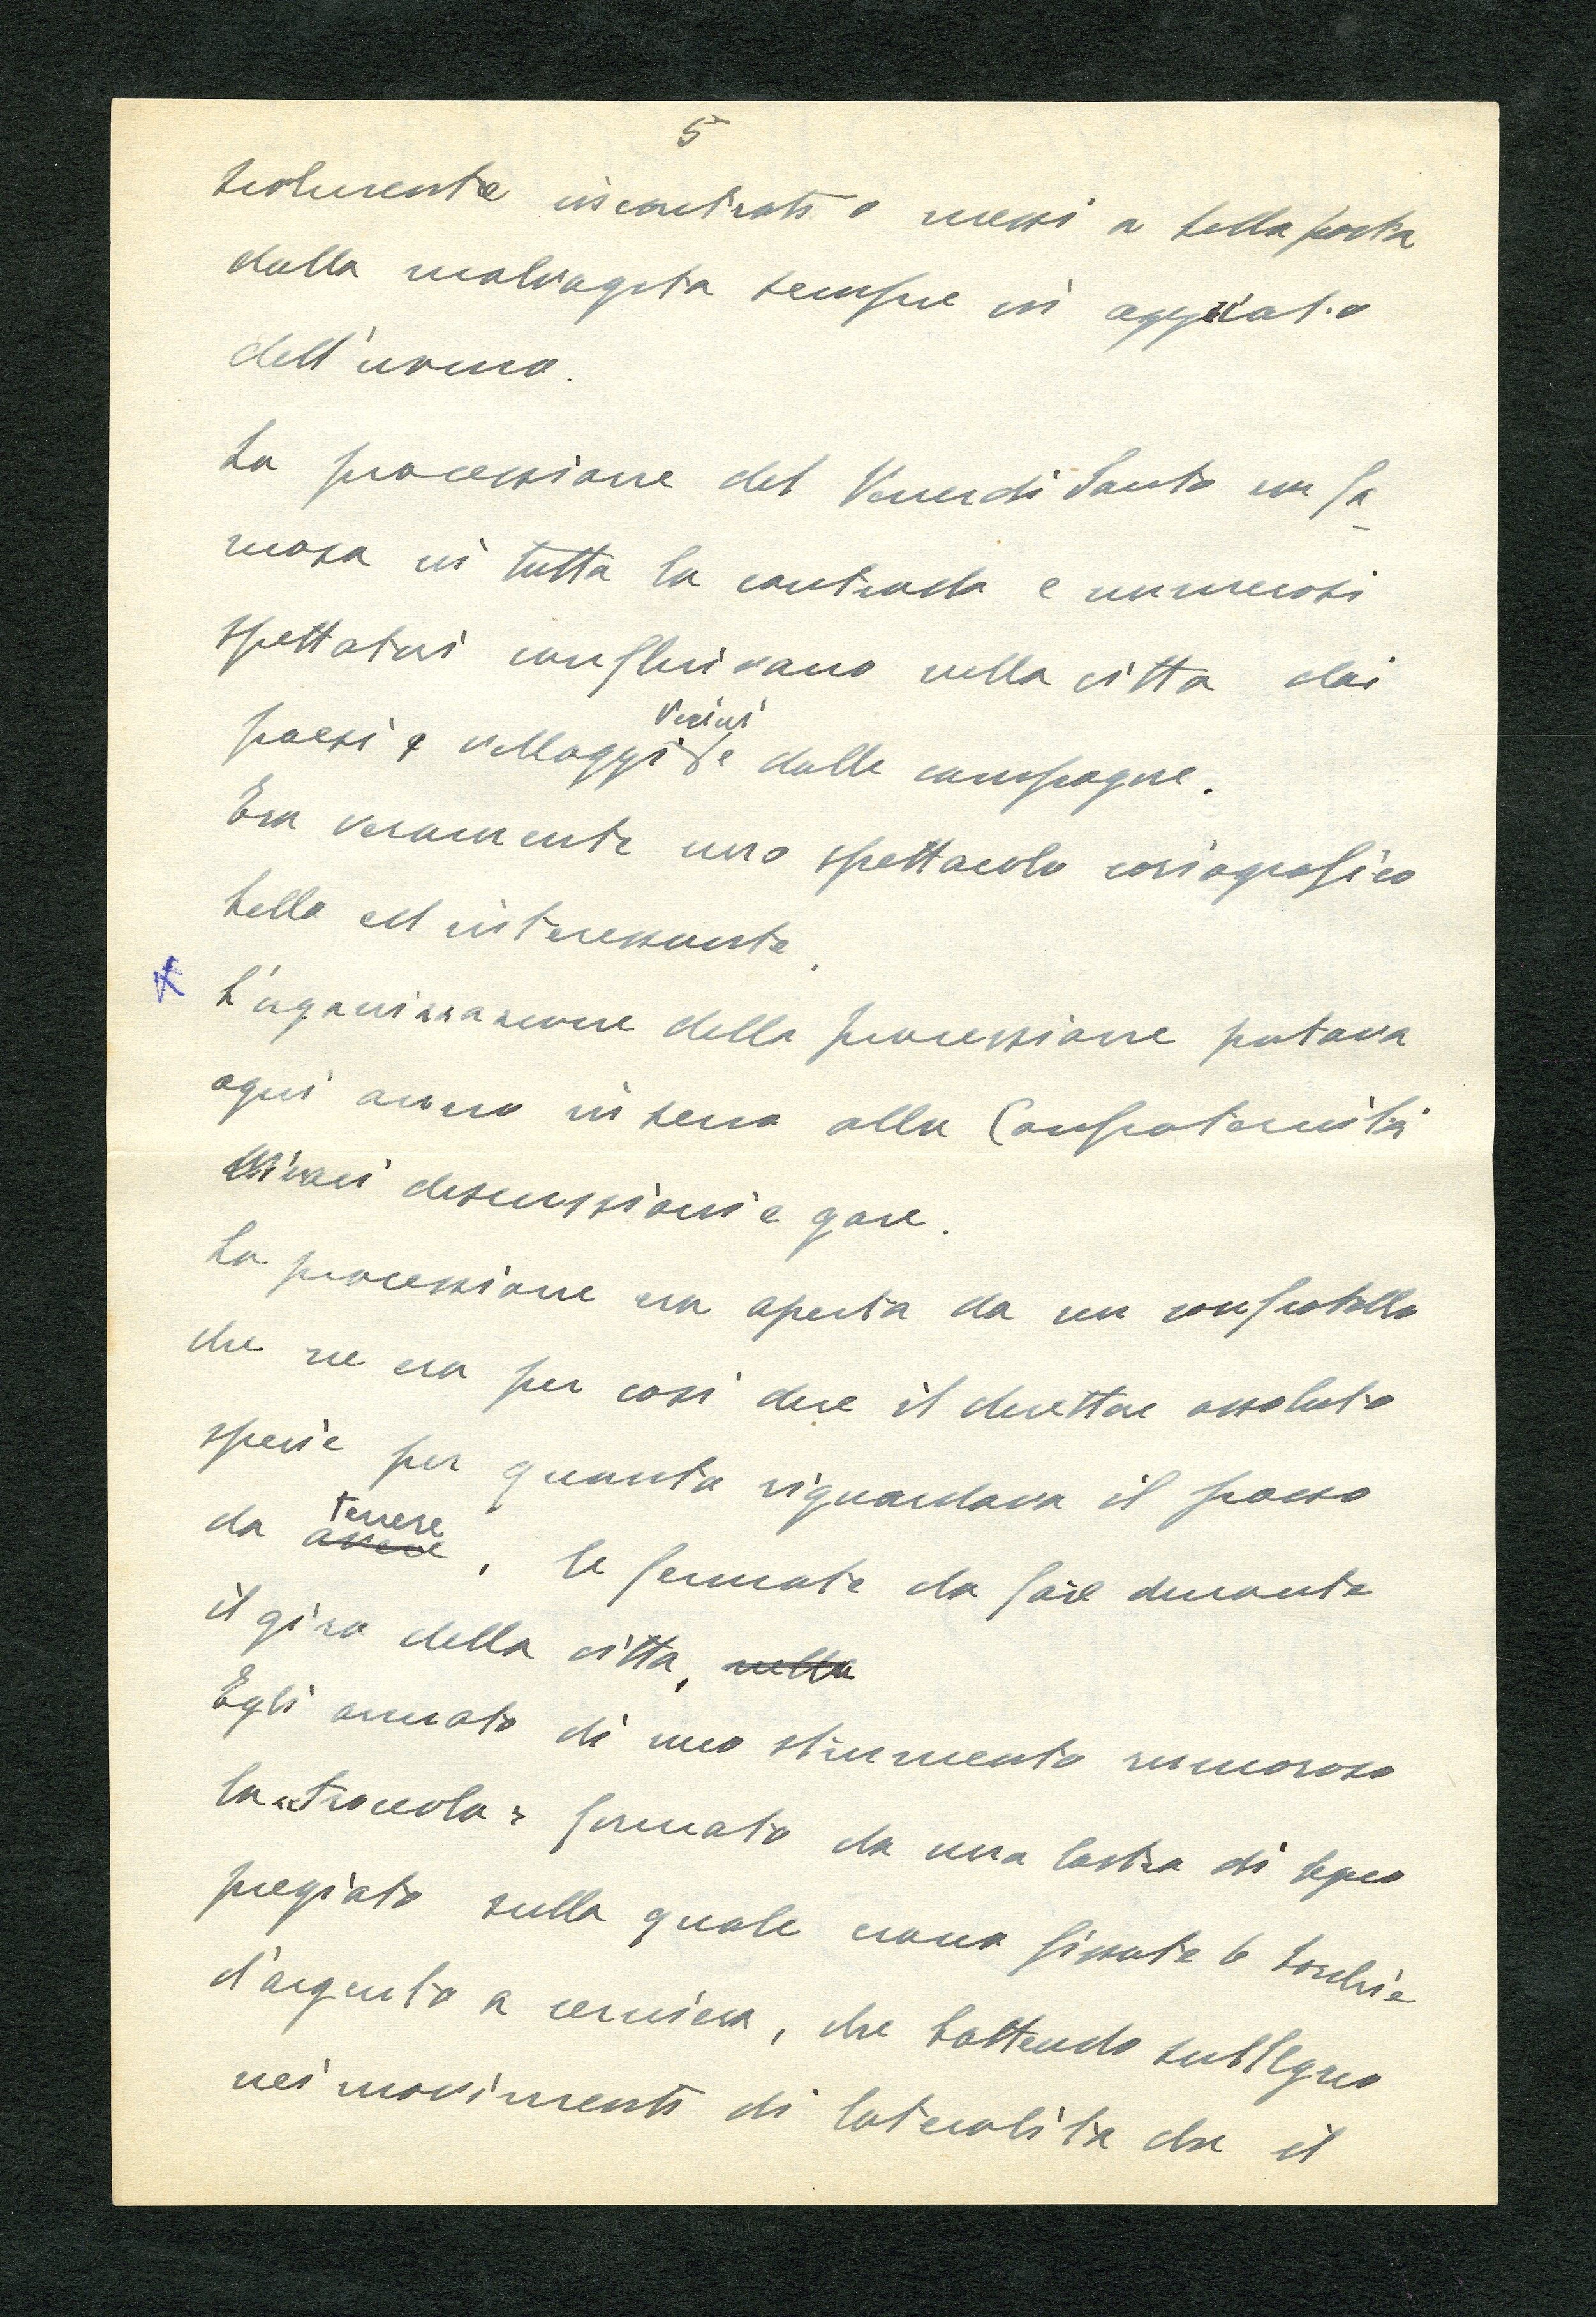 5
incontrati o messi a bella posta
dalla malvagita sempre in agguato
dell'uomo.
La processione del Venerdi Santo era fa-
mosa in tutta la contrada e numerosi
spettatori confluivano nella citta dai
vicini
paesi e villaggi e dalle campagne.
Era veramente uno spettacolo coriografico
bello ed interessante.
L'organizzazione della processione portava
ogni anno in seno alla Confraternita
vivaci discussioni e gare.
La processione era aperta da un confratello
che ne era per cosi dire il direttore assoluto
specie per quanto riguardava il passo
tenere
da avere, le fermate da fare durante
il giro della citta, nella
Egli armato di uno strumento rumoroso
la "troccola" formato da una lastra di legno
pregiato sulla quale erano fissate 6 borchie
d'argento a cerniera, che battendo sul legno
nei movimenti di lateralita che il